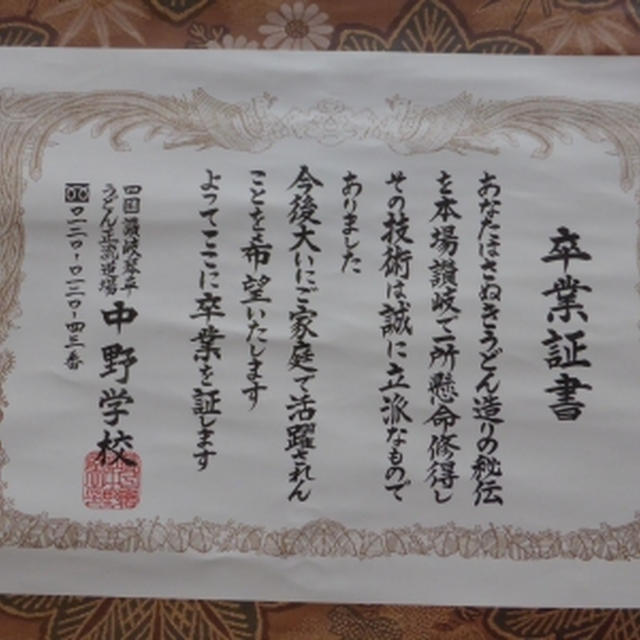 卒業証書
あなたはさぬきうどん造りの秘伝
を本場讃岐で一所懸命修得し
その技術は誠に立派なもので
ありました
今後大いにご家庭で活躍されん
ことを希望いたします
よってここに卒業を証します
四国讃岐琴平
うどん造り道場
中野学校
〇一二〇・〇一二〇・四三番